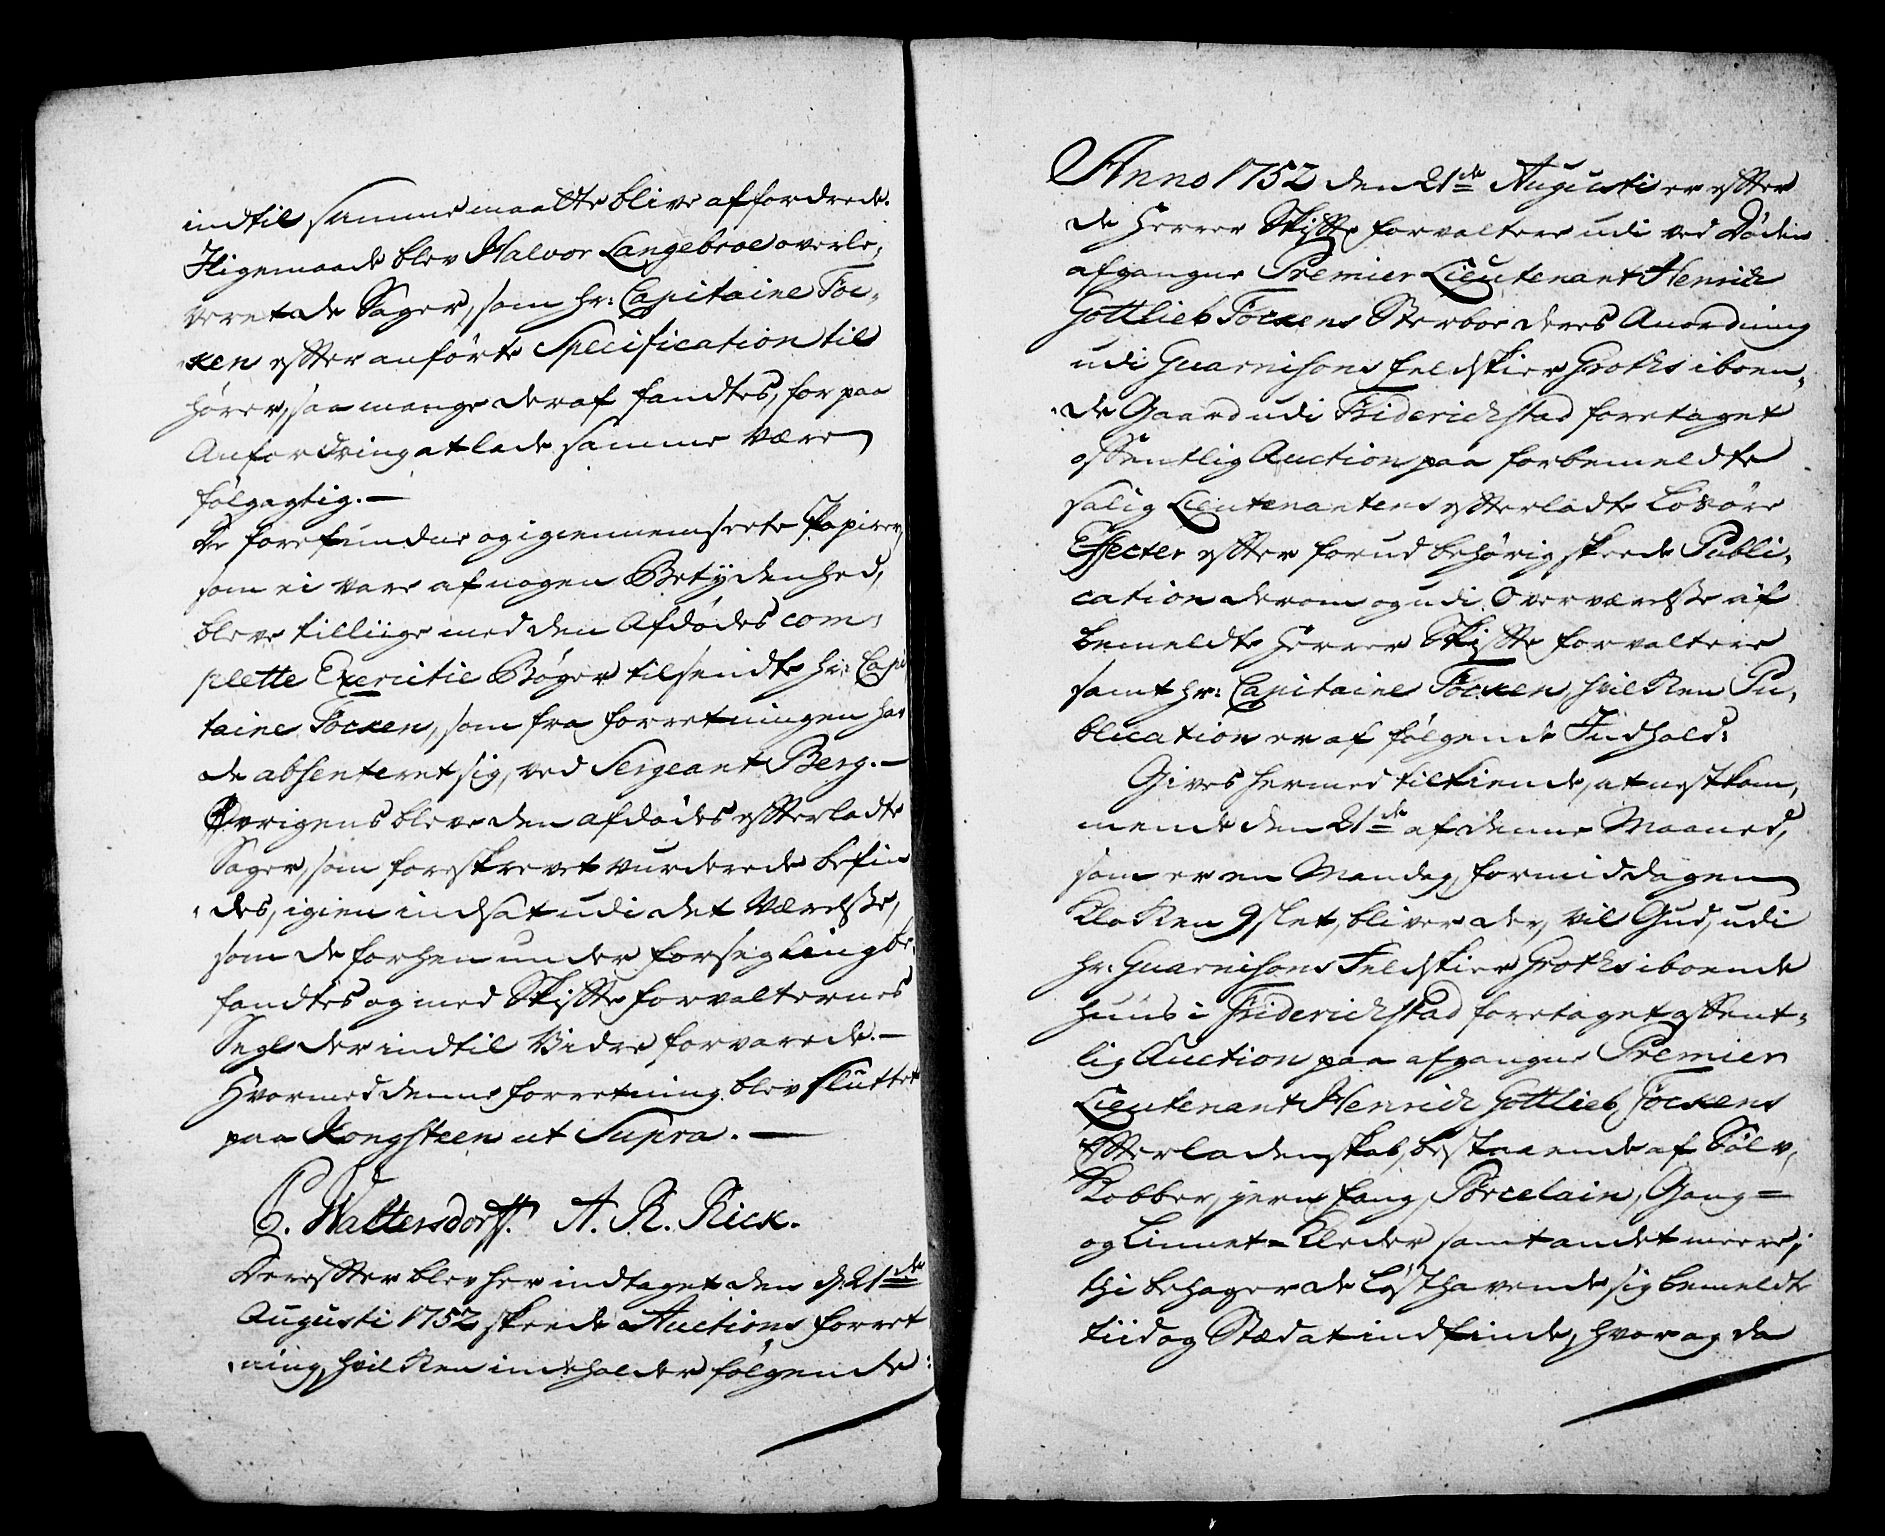 indtil samme maatte blive affordrede.
Ligemaade blev Halvor Langebroe overle,
veret de Sager, som hr: Capitaine Föc,
ken efter anförte Specification til
hörer, saa mange deraf fandtes, for paa
Anfordring at lade samme være
fölgagtig. —
De forefundne og igiennemseete Papirer,
som ei vare af nogen Betÿdenhed,
bleve tilliige med den Afdödes com,
plette Exercitie Böger tilsendte hr: Capi
taine Föcken, som fra forretningen hav
de absenteret sig, ved Sergeant Berg. —
Øvrigens bleve den afdödes efterladte
Sager, som foreskrevet vurderede befin
des, igien indsat udi det Værelsse,
som de forhen under forsegling be,
fandtes og med Skifte forvalternes
Segl der indtil Vidre forvarede. —
Hvormed denne forretning blev sluttet
paa Kongsteen ut Supra. —
C. Waltersdorff. A. R. Rick.
Derefter blev her indtaget den d. 21de
Augusti 1752 skeede Auctions forret
ning, hvilken indeholder fölgende:
Anno 1752 den 21de Augusti er efter
de Herrer Skifte forvaltere udi ved Döden
afgangne Premier Lieutenant Henrich
Gottlieb Föckens Sterboe deres Anordning
udi Guarnisons feldskier Groths iboen,
de Gaard udi Friderichstad foretaget
offentlig Auction paa forbemeldte
salig Lieutenantens efterladte Lösöre
Effecter efter forud behörig skeede Publi,
cation derom og udi Overværelsse af
bemeldte Herrer Skifte forvaltere
samt hr: Capitaine Föcken, hvilken Pu,
blication er af fölgende Indhold:
Gives hermed tilkiende, at nestkom,
mende den 21de af denne Maaned,
som er en Mandag, formiddagen
Klokken 9 slet, bliver der, vil Gud, udi
hr: Guarnisons Feldskier Groths iboende
huus i Friderichstad foretaget offent-
lig Auction paa afgangne Premier
Lieutenant Henrich Gottlieb Föckens
Efterladenskab, bestaaende af Sölv,
Kobber, jern fang, Porcelain, Gang=
og Linnet=Kleder samt andet meere;
thi behager de Lysthavende sig bemeldte
tiid og Stæd at indfinde, hvor og da